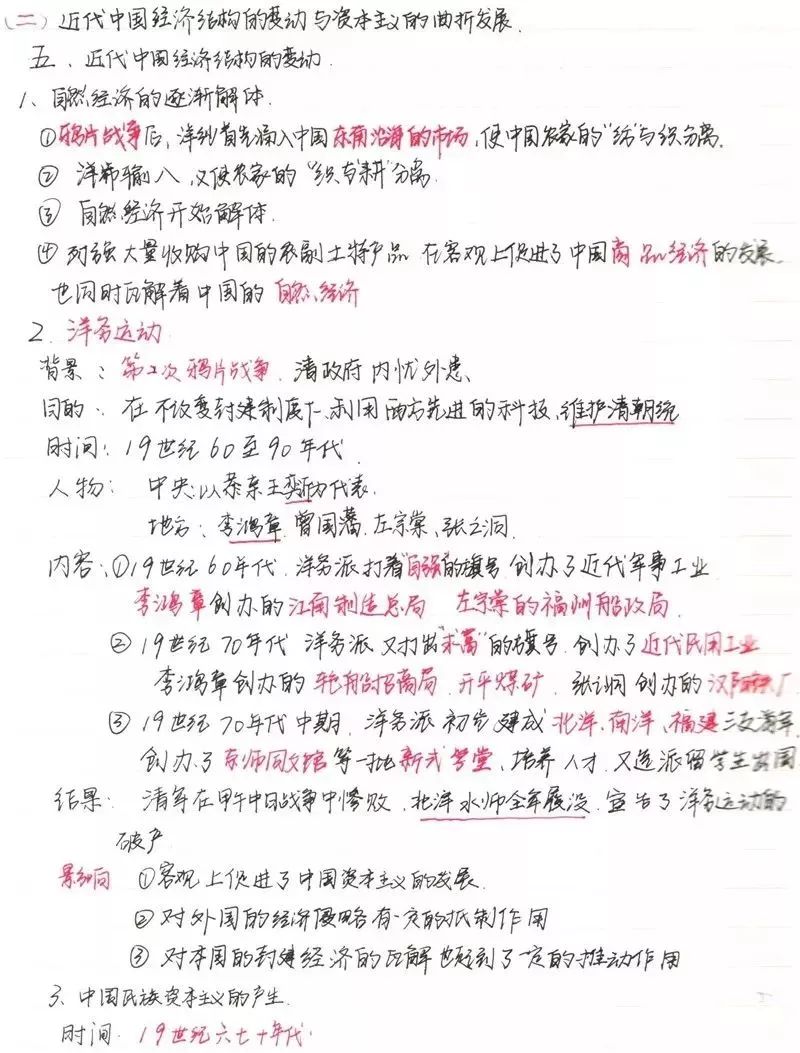 (二) 近代中国经济结构的变动与资本主义的曲折发展.
五、近代中国经济结构的变动
1、自然经济的逐渐解体.
①鸦片战争后,洋纱首先涌入中国东南沿海的市场,使中国农家的"纺"与织分离.
② 洋布输入,又使农家的"织与耕"分离.
③ 自然经济开始解体.
④列强大量收购中国的农副土特产品 在客观上促进了中国商品经济的发展.
也同时瓦解着中国的 自然经济
2. 洋务运动
背景: 第二次鸦片战争. 清政府内忧外患、
目的: 在不改变封建制度下、利用西方先进的科技、维护清朝统
时间: 19世纪60至90年代.
人物: 中央:以恭亲王奕䜣为代表.
地方: 李鸿章 曾国藩、左宗棠、张之洞.
内容:①19世纪60年代、洋务派打着"自强"的旗号 创办了近代军事工业
李鸿章创办的江南制造总局 左宗棠的福州船政局.
②19世纪70年代 洋务派又打出"求富"的旗号、创办了近代民用工业
李鸿章创办的 轮船招商局、开平煤矿、张之洞 创办的汉阳铁厂
③ 19世纪70年代中期、洋务派初步建成 北洋、南洋、福建三支海军
创办了京师同文馆等一批新式学堂、培养人才.又选派留学生出国
结果: 清军在甲午中日战争中惨败、北洋水师全军覆没.宣告了洋务运动的
破产
影响 ①客观上促进了中国资本主义的发展.
②对外国的经济侵略有一定的抵制作用
③ 对本国的封建经济的瓦解也起到了一定的推动作用
3、中国民族资本主义的产生.
时间: 19世纪六七十年代.